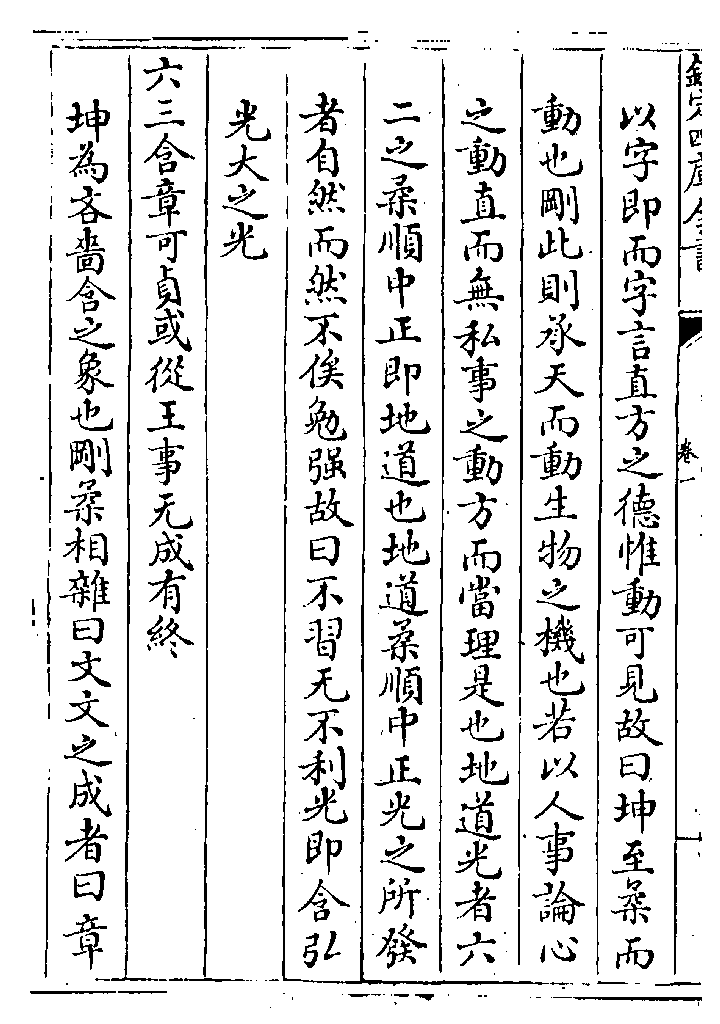 欽定四庫全書
卷一
以字即而字言直方之德惟動可見故曰坤至柔而
動也剛此則承天而動生物之機也若以人事論心
之動直而無私事之動方而當理是也地道光者六
二之柔順中正即地道也地道柔順中正光之所發
者自然而然不俟勉强故曰不習无不利光即含弘
光大之光
六三含章可貞或從王事无成有終
坤為吝嗇含之象也剛柔相雜曰文文之成者曰章